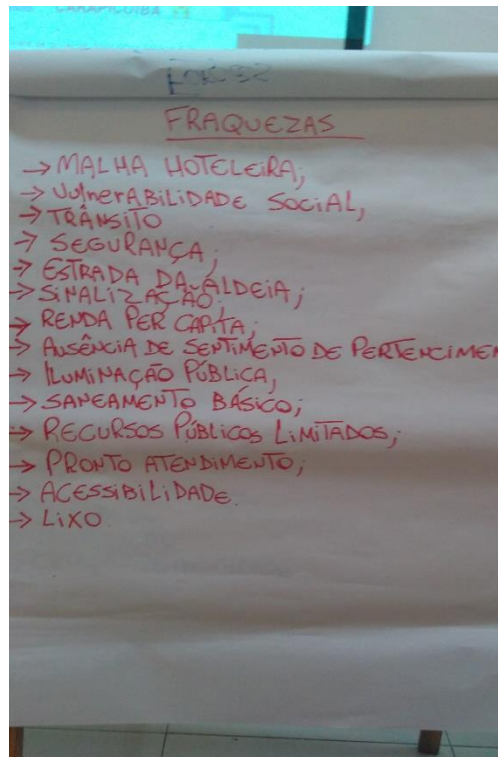 CARAPICUÍBA
FRAQUEZAS
→ MALHA HOTELEIRA;
→ VulnerABiLiDADE SociAL,
→ TRÂNSITO
→ SEGURANÇA;
→ ESTRADA DA ALDEIA;
→ SINALIZAÇÃO;
→ RENDA PER CAPITA;
→ AUSÊNCIA DE SENTIMENTO DE PERTENCIMEN
→ ILUMINAÇÃO PÚBLICA,
→ SANEAMENTO BÁSICO;
→ RECURSOS PÚBLICOS LIMITADOS;
→ PRONTO ATENDIMENTO;
→ ACESSIBILIDADE.
→ LIXO.